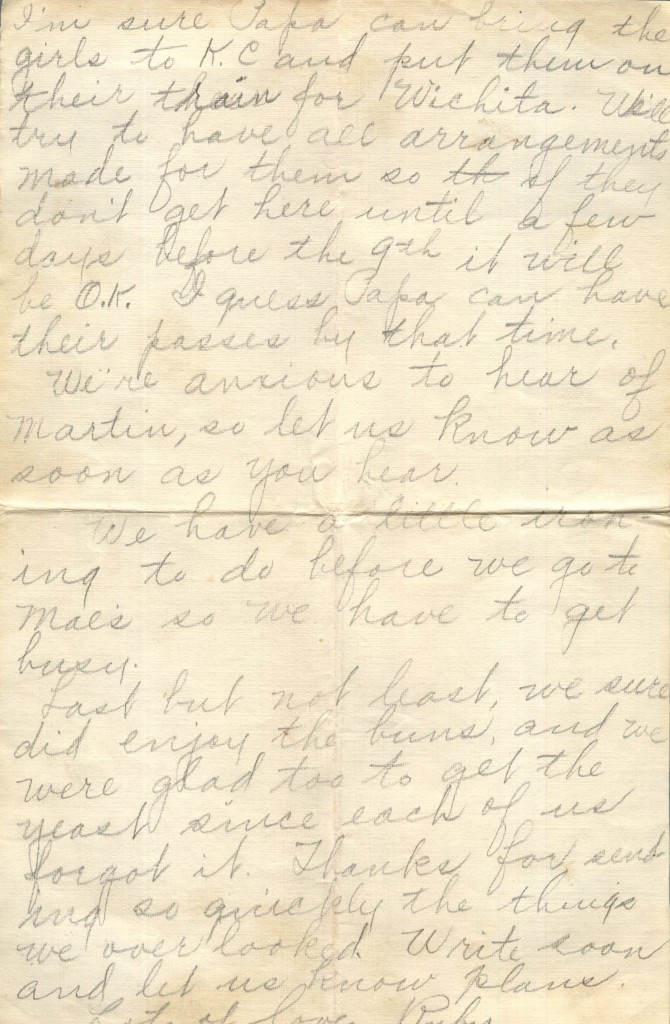 I'm sure Papa can bring the
girls to K.C and put them on
their train for Wichita. We'll
try to have all arrangements
made for them so th if they
don't get here until a few
days before the 9th it will
be O.K. I guess Papa can have
their passes by that time.
We're anxious to hear of
Martin, so let us know as
soon as you hear.
We have a little iron-
ing to do before we go to
Mae's so we have to get
busy.
Last but not least, we sure
did enjoy the buns, and we
were glad too to get the
yeast since each of us
forgot it. Thanks for send-
ing so quickly the things
we over looked. Write soon
and let us know plans.
Lots of love, Ruby